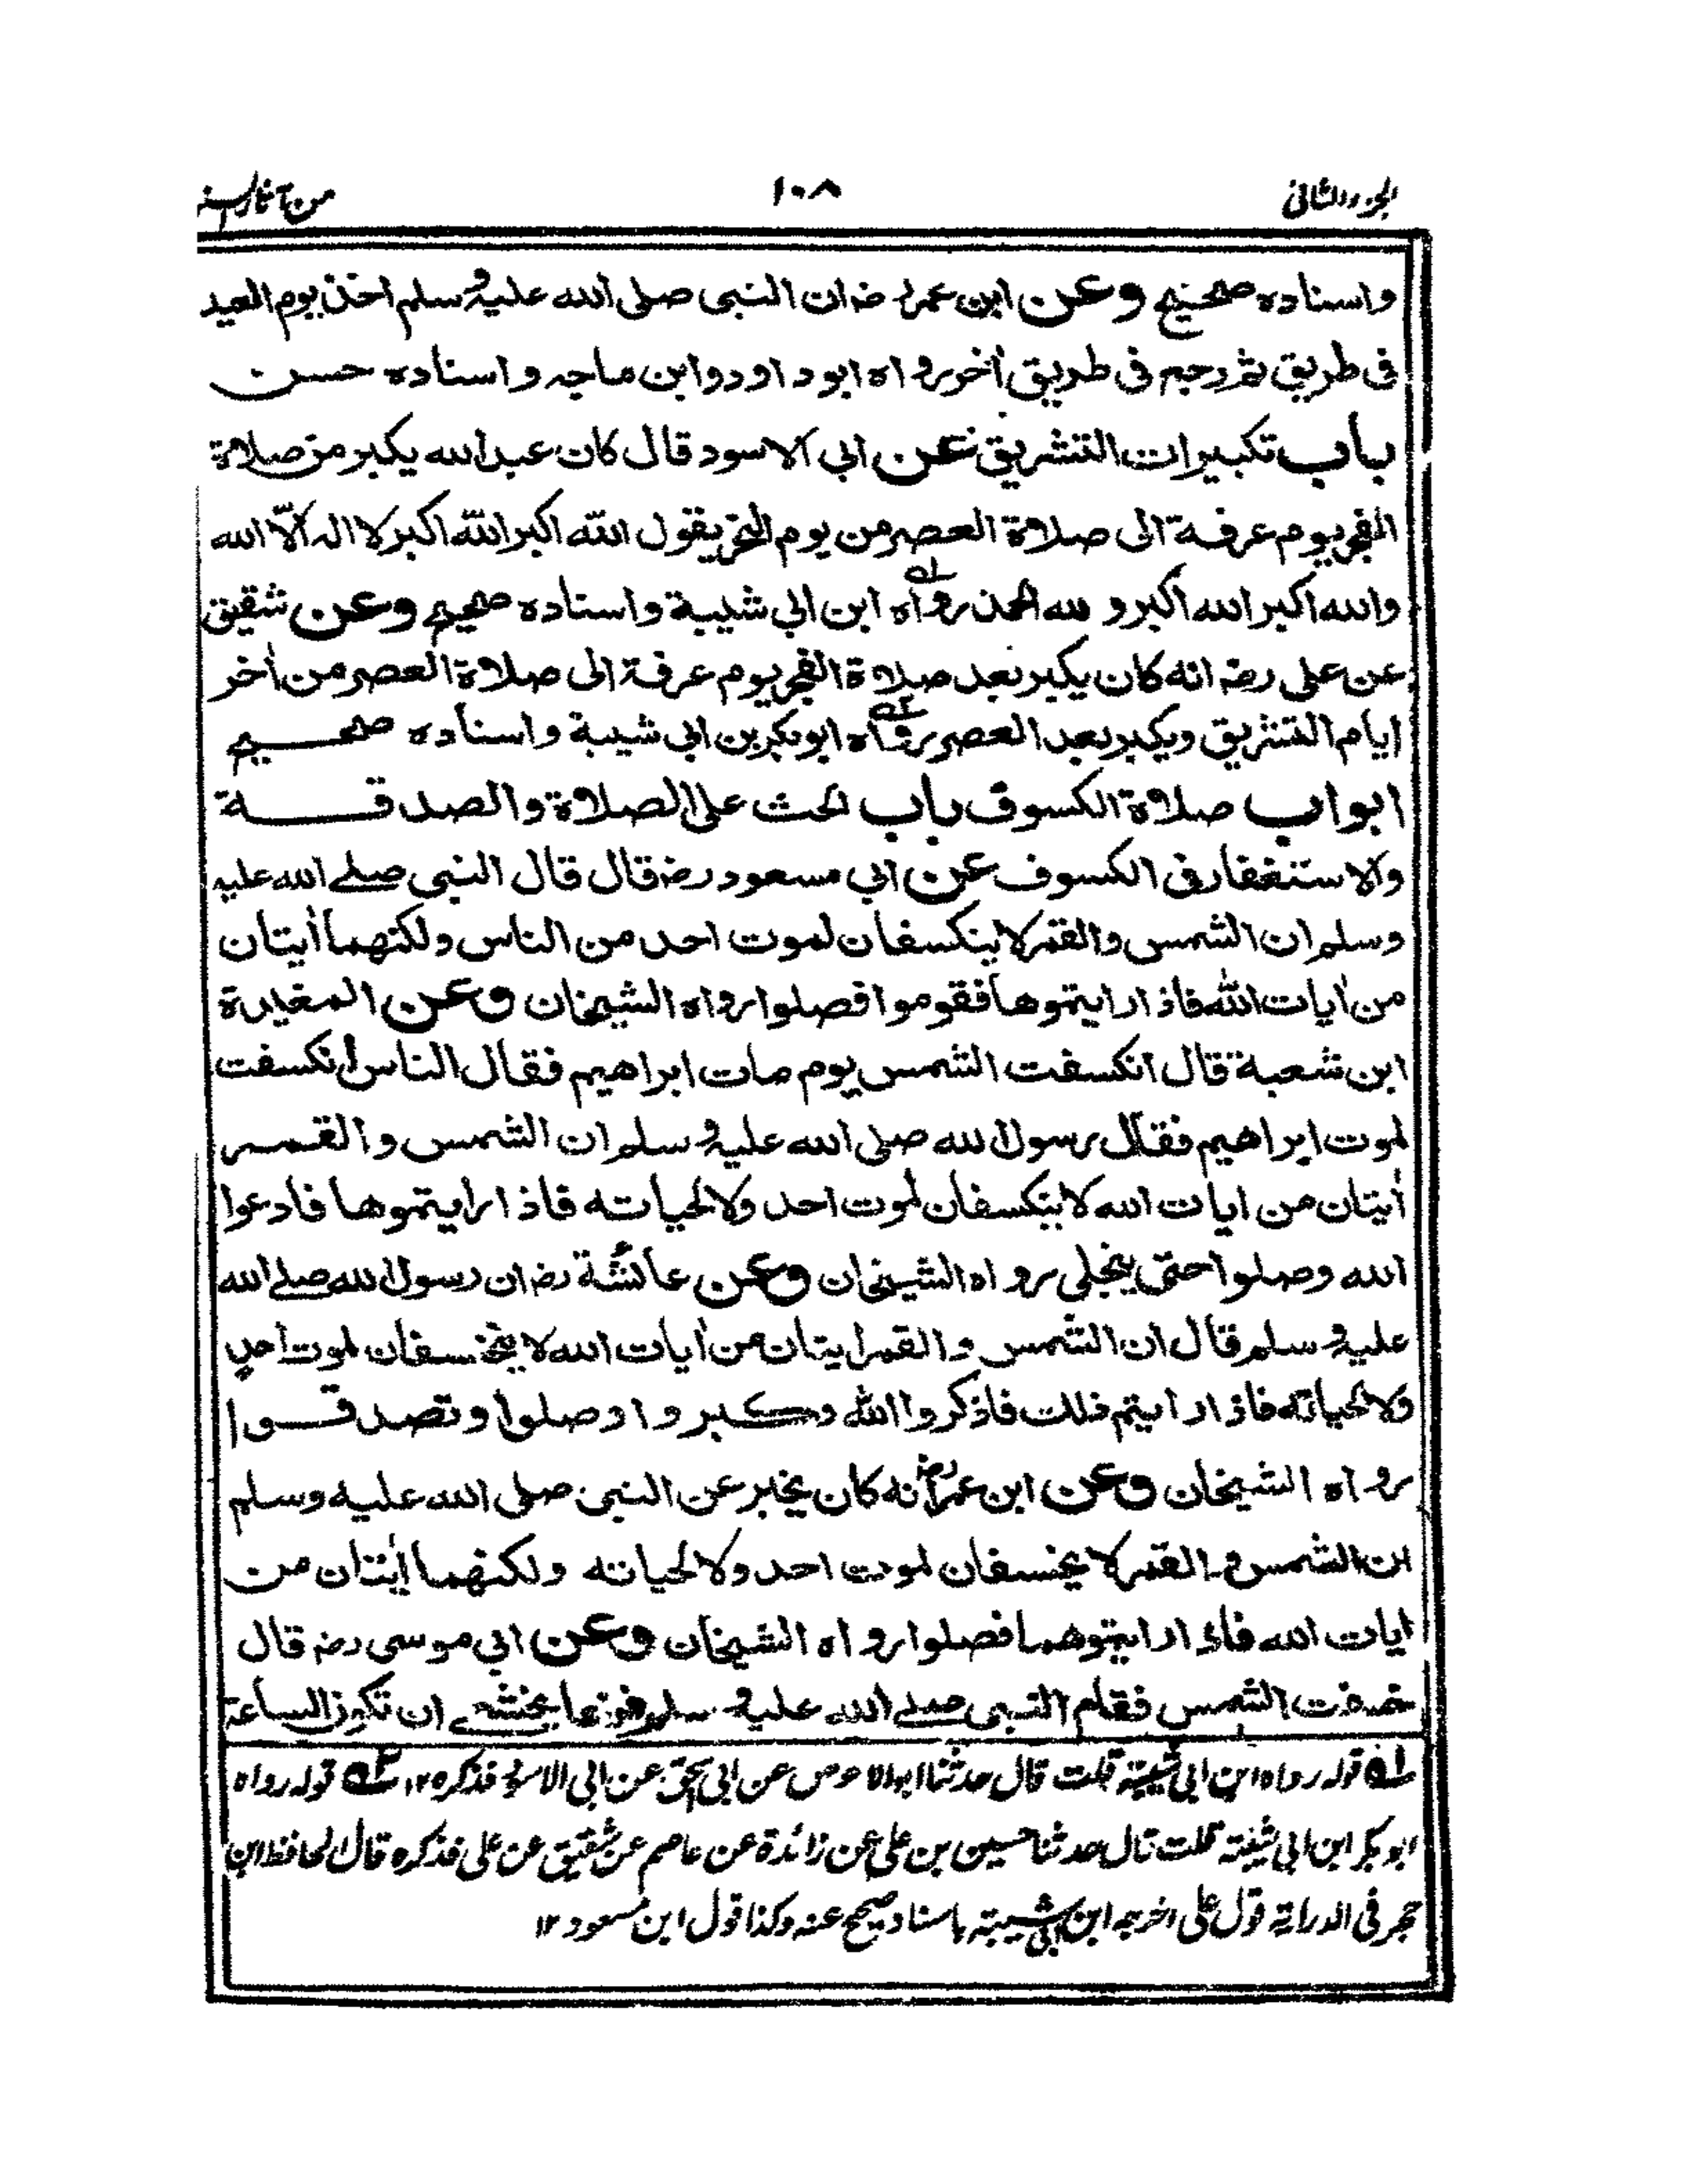 الجزء الثانی ۱۰۸ من آثار السنن
واسناده صحیح وعن ابن عمر رضـ ان النبی صلی الله علیہ وسلم اخذ یوم العید
فی طریق ثم رجع فی طریق اٰخر رواه ابو داود وابن ماجہ واسناده حسن
باب تکبیرات التشریق عن ابی الاسود قال کان عبدالله یکبر من صلاة
الفجر یوم عرفة الی صلاة العصر من یوم النحر یقول اللّٰه اکبر اللّٰه اکبر لا الہ الّا الله
والله اکبر الله اکبر و لله الحمد رواه ابن ابی شیبة واسناده صحیح وعن شقیق
عن علی رضـ انه کان یکبر بعد صلاة الفجر یوم عرفة الی صلاة العصر من اٰخر
ایام التشریق ویکبر بعد العصر رواه ابوبکر بن ابی شیبة واسناده صحیح
ابواب صلاة الکسوف باب الحث علی الصلاة والصدقة
والاستغفار فی الکسوف عن ابی مسعود رضـ قال قال النبی صلے الله علیہ
وسلم ان الشمس والقمر لا ینکسفان لموت احد من الناس ولکنهما اٰیتان
من اٰیات اللّٰه فاذا رایتموها فقوموا فصلوا رواه الشیخان وعن المغیرة
ابن شعبة قال انکسفت الشمس یوم مات ابراهیم فقال الناس انکسفت
لموت ابراهیم فقال رسول الله صلی الله علیہ وسلم ان الشمس والقمر
اٰیتان من ایات الله لا ینکسفان لموت احد ولا لحیاته فاذا رایتموها فادعوا
الله وصلوا حتی ینجلی رواه الشیخان وعن عائشة رضـ ان رسول الله صلے الله
علیہ وسلم قال ان الشمس والقمر ایتان من اٰیات الله لا یخسفان لموت احدٍ
ولا لحیاته فاذا رایتم ذلک فاذکروا اللّٰه وکبروا وصلوا وتصدقوا
رواه الشیخان وعن ابن عمر رضـ انه کان یخبر عن النبی صلی الله علیه وسلم
ان الشمس والقمر لا یخسفان لموت احد ولا لحیاته ولکنهما اٰیتان من
ایات الله فاذا رایتموهما فصلوا رواه الشیخان وعن ابی موسی رضـ قال
خسفت الشمس فقام النبی صلے الله علیہ وسلم فزعا یخشے ان تکون الساعة
لہ قولہ رواه ابن ابی شیبة قلت قال حدثنا ابوالاحوص عن ابی اسحٰق عن ابی الاسود فذکره ۱۲ ۲ہ قولہ رواه
ابو بکر ابن ابی شیبة قلت قال حدثنا حسین بن علی عن زائدة عن عاصم عن شقیق عن علی فذکره قال الحافظ ابن
حجر فی الدرایة قول علی اخرجہ ابن ابی شیبة باسناد صحیح عنہ وکذا قول ابن مسعود ۱۲